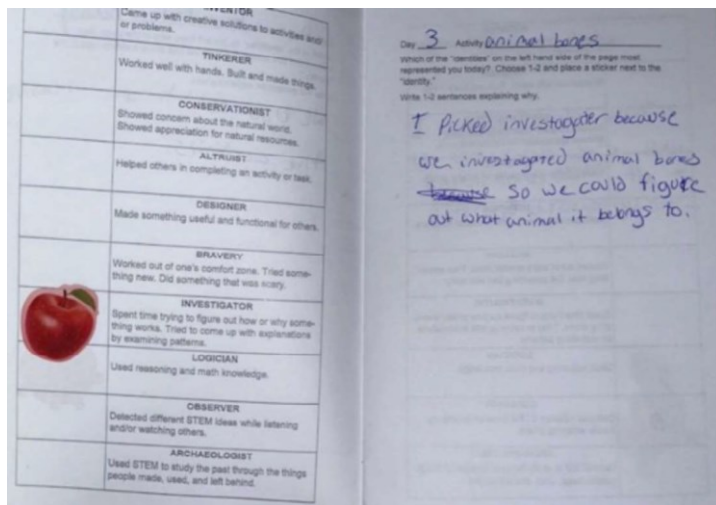 VENTOR
Came up with creative solutions to activities and/
or problems.
TINKERER
Worked well with hands. Built and made things.
CONSERVATIONIST
Showed concern about the natural world.
Showed appreciation for natural resources.
ALTRUIST
Helped others in completing an activity or task.
DESIGNER
Made something useful and functional for others.
BRAVERY
Worked out of one's comfort zone. Tried some-
thing new. Did something that was scary.
INVESTIGATOR
Spent time trying to figure out how or why some-
thing works. Tried to come up with explanations
by examining patterns.
LOGICIAN
Used reasoning and math knowledge.
OBSERVER
Detected different STEM ideas while listening
and/or watching others.
ARCHAEOLOGIST
Used STEM to study the past through the things
people made, used, and left behind.
Day 3 Activity animal bones
Which of the "identities" on the left hand side of the page most
represented you today? Choose 1-2 and place a sticker next to the
"identity."
Write 1-2 sentences explaining why.
I Picked investogater because
we investagated animal bones
because so we could figure
out what animal it belongs to.